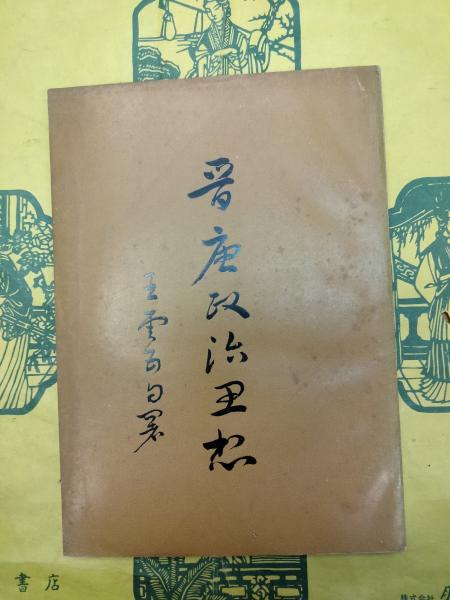 晋唐政治思想
王雲五自署
書店
株式会社